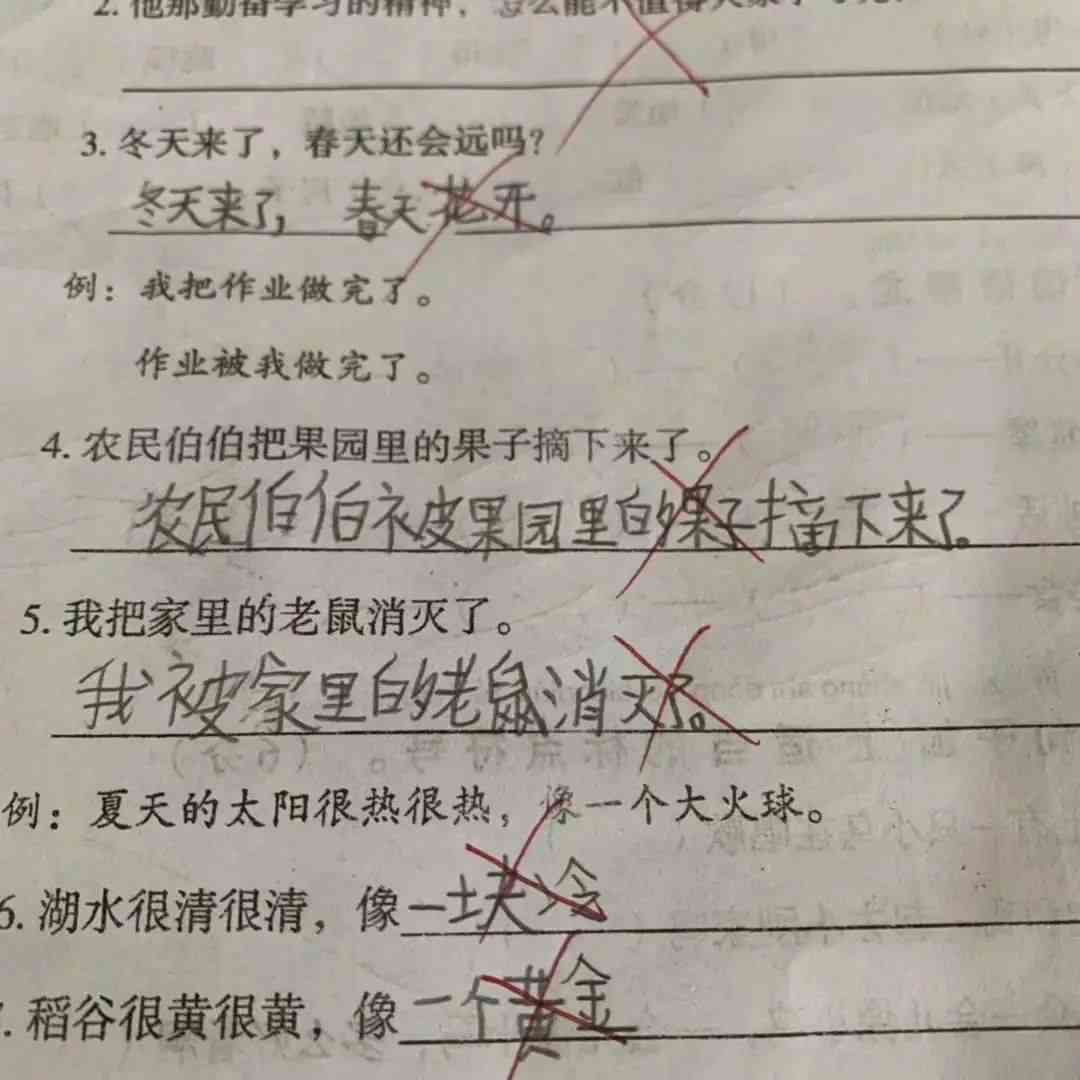 2. 他那勤奋学习的精神，怎么能不值得大家学习呢？
3. 冬天来了，春天还会远吗？
冬天来了，春天花开。
例：我把作业做完了。
作业被我做完了。
4. 农民伯伯把果园里的果子摘下来了。
农民伯伯被果园里的果子摘下来了。
5. 我把家里的老鼠消灭了。
我被家里的老鼠消灭了。
例：夏天的太阳很热很热，像一个大火球。
6. 湖水很清很清，像一块冷
. 稻谷很黄很黄，像一个黄金